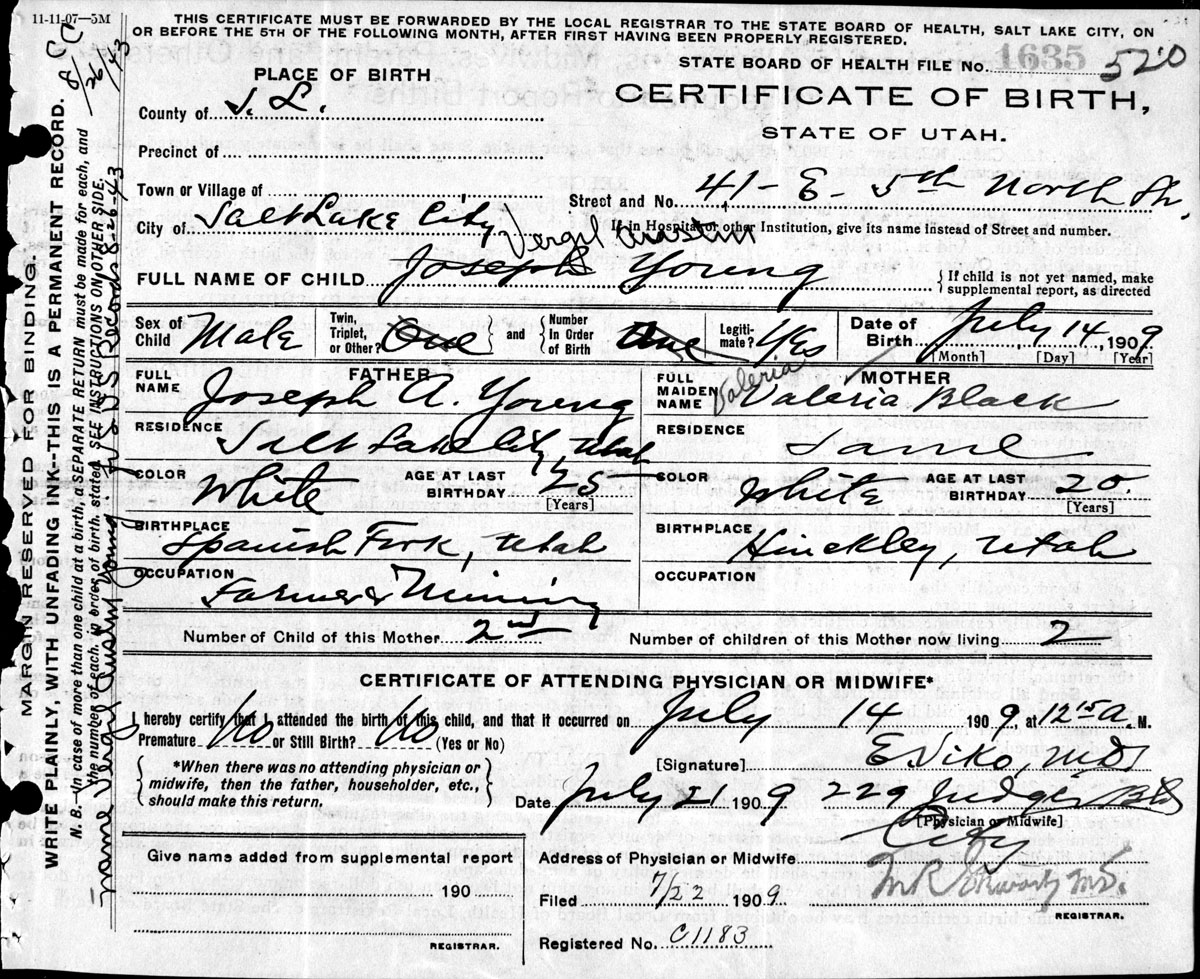 11-11-07—5M
THIS CERTIFICATE MUST BE FORWARDED BY THE LOCAL REGISTRAR TO THE STATE BOARD OF HEALTH, SALT LAKE CITY, ON
OR BEFORE THE 5TH OF THE FOLLOWING MONTH, AFTER FIRST HAVING BEEN PROPERLY REGISTERED.
STATE BOARD OF HEALTH FILE No. 1635 520
CERTIFICATE OF BIRTH,
STATE OF UTAH.
PLACE OF BIRTH
County of S. L.
Precinct of
Town or Village of
Street and No. 41 - E - 5th North St.
City of Salt Lake City
If in Hospital or other Institution, give its name instead of Street and number.
Vergil Austin
FULL NAME OF CHILD Joseph Young
{If child is not yet named, make supplemental report, as directed
Sex of Child Male
Twin, Triplet, or Other? One
and
Number In Order of Birth One
Legitimate? Yes
Date of Birth July 14, 1909
[Month] [Day] [Year]
FATHER
FULL NAME Joseph A. Young
RESIDENCE Salt Lake City, Utah
COLOR White
AGE AT LAST BIRTHDAY 25
[Years]
BIRTHPLACE Spanish Fork, Utah
OCCUPATION Farmer & Mining
MOTHER
FULL MAIDEN NAME Valeria Valeria Black
RESIDENCE Same
COLOR White
AGE AT LAST BIRTHDAY 20.
[Years]
BIRTHPLACE Hinckley, Utah
OCCUPATION
Number of Child of this Mother 2nd
Number of children of this Mother now living 2
CERTIFICATE OF ATTENDING PHYSICIAN OR MIDWIFE*
I hereby certify that I attended the birth of this child, and that it occurred on July 14 1909, at 12 15 A. M.
Premature No or Still Birth? No (Yes or No)
*When there was no attending physician or
midwife, then the father, householder, etc.,
should make this return.
[Signature] E Viko, M.D.
Date July 21 1909 229 Judge Bld
[Physician or Midwife]
Address of Physician or Midwife City
Give name added from supplemental report
190
REGISTRAR.
Filed 7/22 1909
M.D.
REGISTRAR.
Registered No. C1183
MARGIN RESERVED FOR BINDING.
WRITE PLAINLY, WITH UNFADING INK--THIS IS A PERMANENT RECORD.
N. B.—In case of more than one child at a birth, a SEPARATE RETURN must be made for each, and
the number of each, in order of birth, stated. SEE INSTRUCTIONS ON OTHER SIDE.
name Vergil Austin Young LDS Record 8-26-43
8/26/43